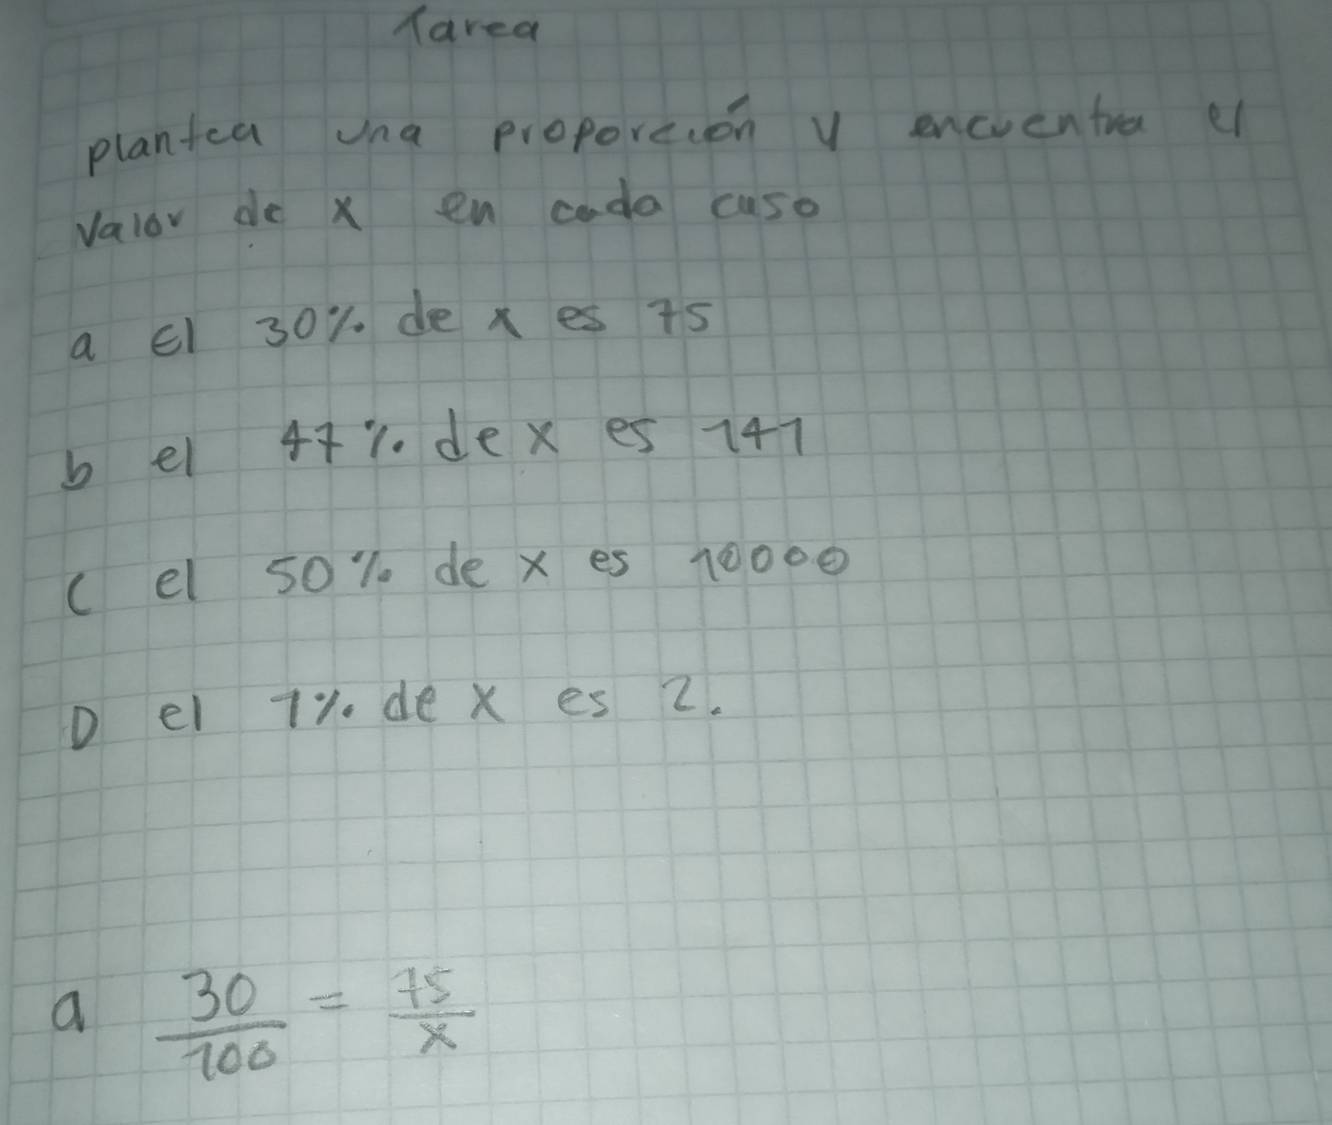 Tarea
plantea una proporción y encuentra el
valor de x en cada caso
a El 30% de x es 75
b el 47% de x es 141
c el 50% de x es 10000
D el 1% de x es 2.
a 30/100 = 75/x